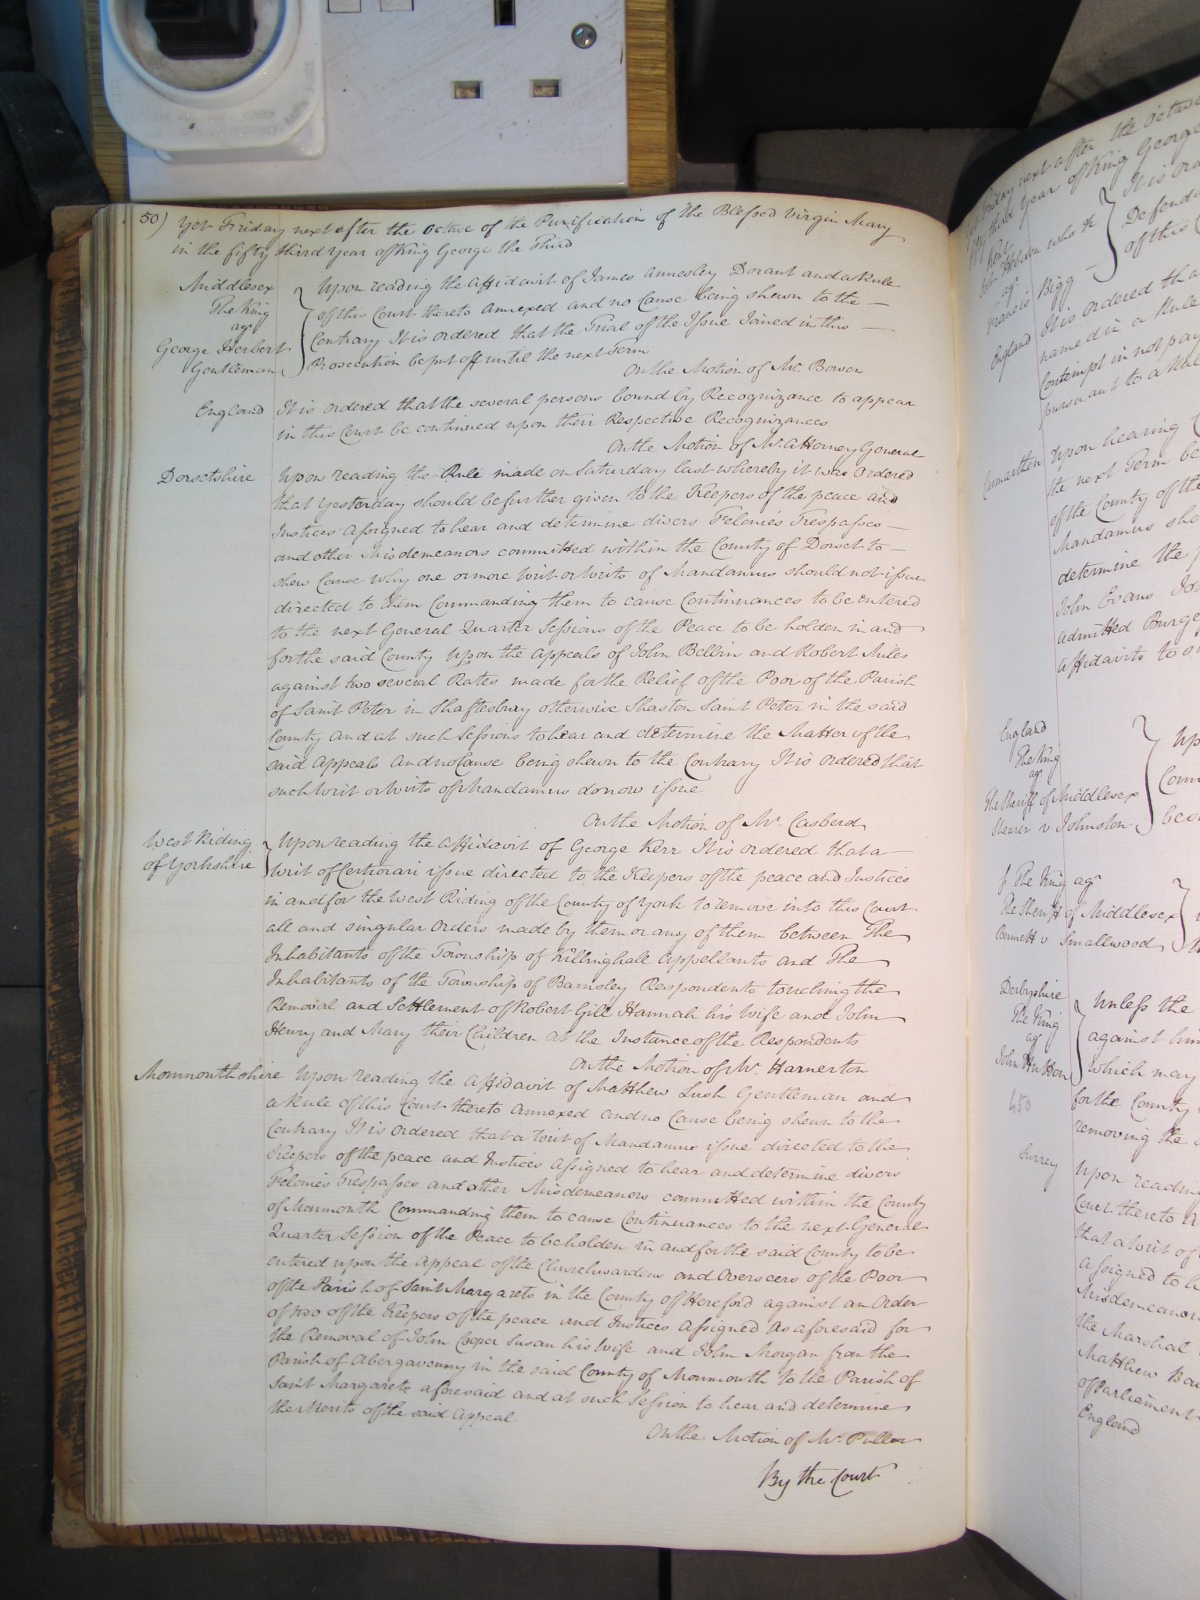 50) Yet Friday next after the Octave of the Purification of the Blessed Virgin Mary
in the fifty third Year of King George the Third
Middlesex
The King
agt
George Herbert
Gentleman
Upon reading the Affidavit of James Annesley Dorant and a Rule
of this Court thereto Annexed and no Cause being shewn to the
Contrary It is ordered that the Trial of the Issue Joined in this
Prosecution be put off until the next Term
On the Motion of Mr. Bowen
England It is ordered that the several persons bound by Recognizance to appear
in this Court be continued upon their Respective Recognizances
On the Motion of Mr. Attorney General
Dorsetshire Upon reading the Rule made on Saturday last whereby it was Ordered
that Yesterday should be further given to the Keepers of the peace and
Justices Assigned to hear and determine divers Felonies Trespasses
and other Misdemeanors committed within the County of Dorset to
shew Cause why one or more Writ or Writs of Mandamus should not issue
directed to them Commanding them to cause Continuances to be entered
to the next General Quarter Sessions of the Peace to be holden in and
for the said County Upon the Appeals of John Bellin and Robert Miles
against two several Rates made for the Relief of the Poor of the Parish
of Saint Peter in Shaftesbury otherwise Shaston Saint Peter in the said
County and at such Sessions to hear and determine the Matter of the
said Appeals and no Cause being shewn to the Contrary It is ordered that
such Writ or Writs of Mandamus do now issue
On the Motion of Mr. Casberd
West Riding
of Yorkshire
Upon reading the Affidavit of George Kerr It is ordered that a
Writ of Certiorari issue directed to the Keepers of the peace and Justices
in and for the West Riding of the County of York to remove into this Court
all and singular Orders made by them or any of them between The
Inhabitants of the Township of Killinghall Appellants and The
Inhabitants of the Township of Barnsley Respondents touching the
Removal and Settlement of Robert Gill Hannah his Wife and John
Henry and Mary their Children At the Instance of the Respondents
On the Motion of Mr. Harnerton
Monmouthshire Upon reading the Affidavit of Matthew Lush Gentleman and
a Rule of this Court thereto Annexed and no Cause being shewn to the
Contrary It is ordered that a Writ of Mandamus issue directed to the
Keepers of the peace and Justices Assigned to hear and determine divers
Felonies Trespasses and other Misdemeanors committed within the County
of Monmouth Commanding them to cause Continuances to the next General
Quarter Session of the Peace to be holden in and for the said County to be
entered upon the Appeal of the Churchwardens and Overseers of the Poor
of the Parish of Saint Margarets in the County of Hereford against an Order
of two of the Keepers of the peace and Justices Assigned as aforesaid for
the Removal of John Cooper Susan his Wife and John Morgan from the
Parish of Abergavenny in the said County of Monmouth to the Parish of
Saint Margarets aforesaid and at such Session to hear and determine
the Merits of the said Appeal
On the Motion of Mr. Puller
By the Court
Friday next after the Octave
third Year of King George
It is ord
Defend
of this C
agt
Francis Bigg
England It is ordered tha
named in a Rule
Contempt in not pay
pursuant to a Rule
Carmarthen Upon hearing
the next Term be
of the County of the
Mandamus sho
determine the
John Evans
admitted Burge
affidavits to
England
The King
agt
The Sheriff of Middlesex
Shearer v Johnston
The King agt
The Sheriff of Middlesex
Bennett v Smallwood
Derbyshire
The King
agt
John Hutton
Unless the
against him
which may
for the County
removing the
Surrey
Upon readin
Court thereto A
that a Writ of
Assigned to
Misdemeanor
the Marshal
Matthew Ba
of Parliament
England